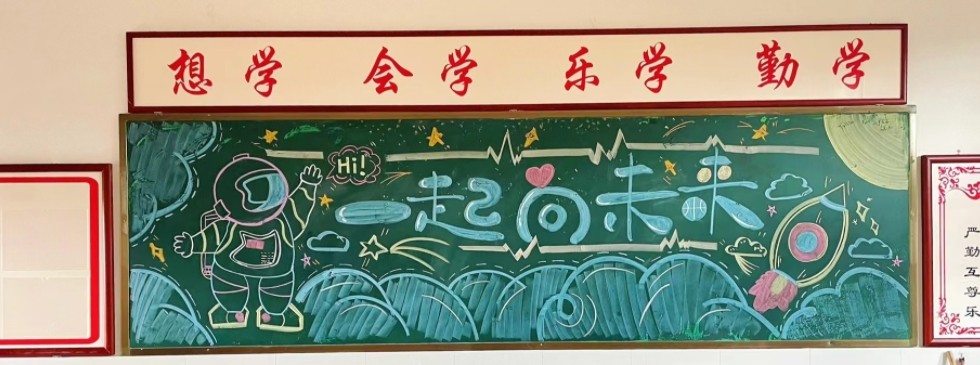 想学 会学 乐学 勤学
Hi!
一起向未来
严
勤
互
尊
乐